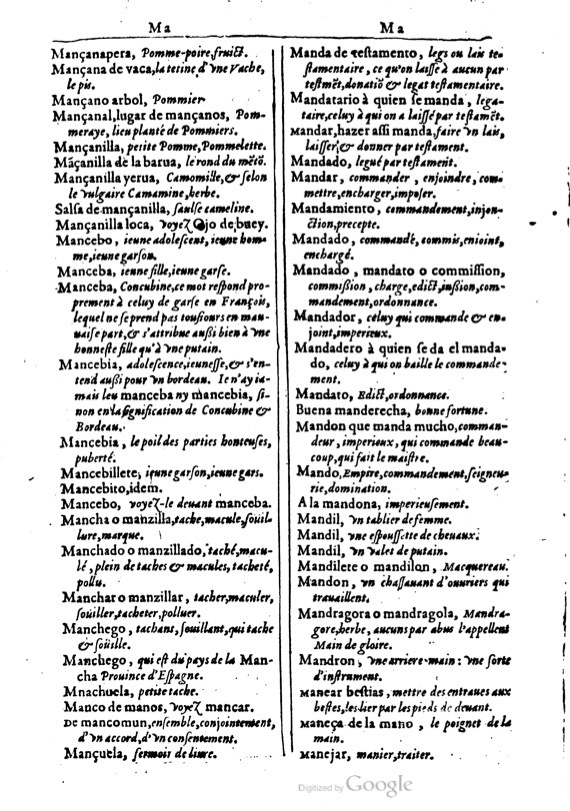 Ma
Mançanapera, Pomme-poire, fruict.
Mançana de vaca, la tetine d'vne Vache,
le pis.
Mançano arbol, Pommier
Mançanal, lugar de mançanos, Pom-
meraye, lieu planté de Pommiers.
Mançanilla, petite Pomme, Pommelette.
Māçanilla de la barua, le rond du mētō.
Mançanilla yerua, Camomille, & selon
le vulgaire Camamine, herbe.
Salsa de mançanilla, saulse cameline.
Mançanilla loca, voyez Ojo de buey.
Mancebo, ieune adolescent, ieune hom-
me, ieune garson.
Manceba, ieune fille, ieune garse.
Manceba, Concubine, ce mot respond pro-
prement à celuy de garse en François,
lequel ne se prend pas tousiours en mau-
uaise part, & s'attribue aussi bien à vne
honneste fille qu'à vne putain.
Mancebia, adolescence, ieunesse, & s'en-
tend aussi pour vn bordeau. Ie n'ay ia-
mais leu manceba ny mancebia, si-
non en la signification de Concubine &
Bordeau.
Mancebia, le poil des parties honteuses,
puberté.
Mancebillete, ieune garson, ieune gars.
Mancebito, idem.
Mancebo, voyez-le deuant manceba.
Mancha o manzilla, tache, macule, soüil-
lure, marque.
Manchado o manzillado, taché, macu-
lé, plein de taches & macules, tacheté,
pollu.
Manchar o manzillar, tacher, maculer,
soüiller, tacheter, polluer.
Manchego, tachant, souillant, qui tache
& soüille.
Manchego, qui est du pays de la Man-
cha Prouince d'Espagne.
Mnachuela, petite tache.
Manco de manos, voyez mancar.
De mancomun, ensemble, conjointement,
d'vn accord, d'vn consentement.
Mançuela, fermoir de liure.
Ma
Manda de testamento, legs ou lais te-
stamentaire, ce qu'on laisse à aucun par
testmēt, donatiō & legat testamentaire.
Mandatario à quien se manda, lega-
taire, celuy à qui on a laissé par testamēt.
Mandar, hazer assi manda, faire vn lais,
laisser, & donner par testament.
Mandado, legué par testament.
Mandar, commander, enjoindre, com-
mettre, encharger, imposer.
Mandamiento, commandement, injon-
ction, precepte.
Mandado, commandé, commis, enioint,
enchargé.
Mandado, mandato o commission,
commission, charge, edict, iussion, com-
mandement, ordonnance.
Mandador, celuy qui commande & en-
joint, imperieux.
Mandadero à quien se da el manda-
do, celuy à qui on baille le commande-
ment.
Mandato, Edict, ordonnance.
Buena manderecha, bonne fortune.
Mandon que manda mucho, comman-
deur, imperieux, qui commande beau-
coup, qui fait le maistre.
Mando, Empire, commandement, seigneu-
rie, domination.
A la mandona, imperieusement.
Mandil, vn tablier de femme.
Mandil, vne espoussette de cheuaux.
Mandil, vn valet de putain.
Mandilete o mandilon, Macquereau.
Mandon, vn chassauant d'ouuriers qui
trauaillent.
Mandragora o mandragola, Mandra-
gore, herbe, aucuns par abus l'appellent
Main de gloire.
Mandron, vne arriere-main: vne sorte
d'instrument.
Manear bestias, mettre des entraues aux
bestes, les lier par les pieds de deuant.
Maneça de la mano, le poignet de la
main.
Manejar, manier, traiter.
Digitized by Google